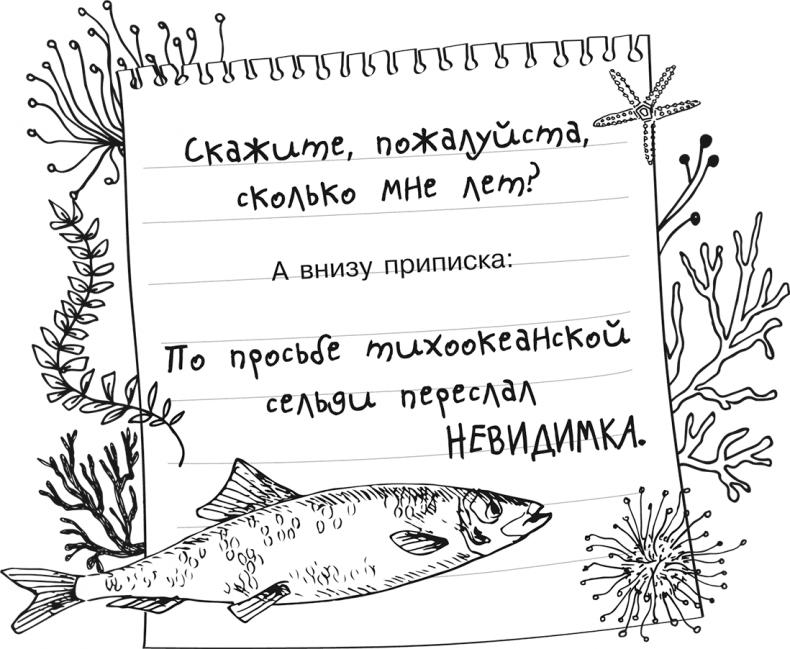 Скажите, пожалуйста,
сколько мне лет?
А внизу приписка:
По просьбе тихоокеанской
сельди переслал
НЕВИДИМКА.